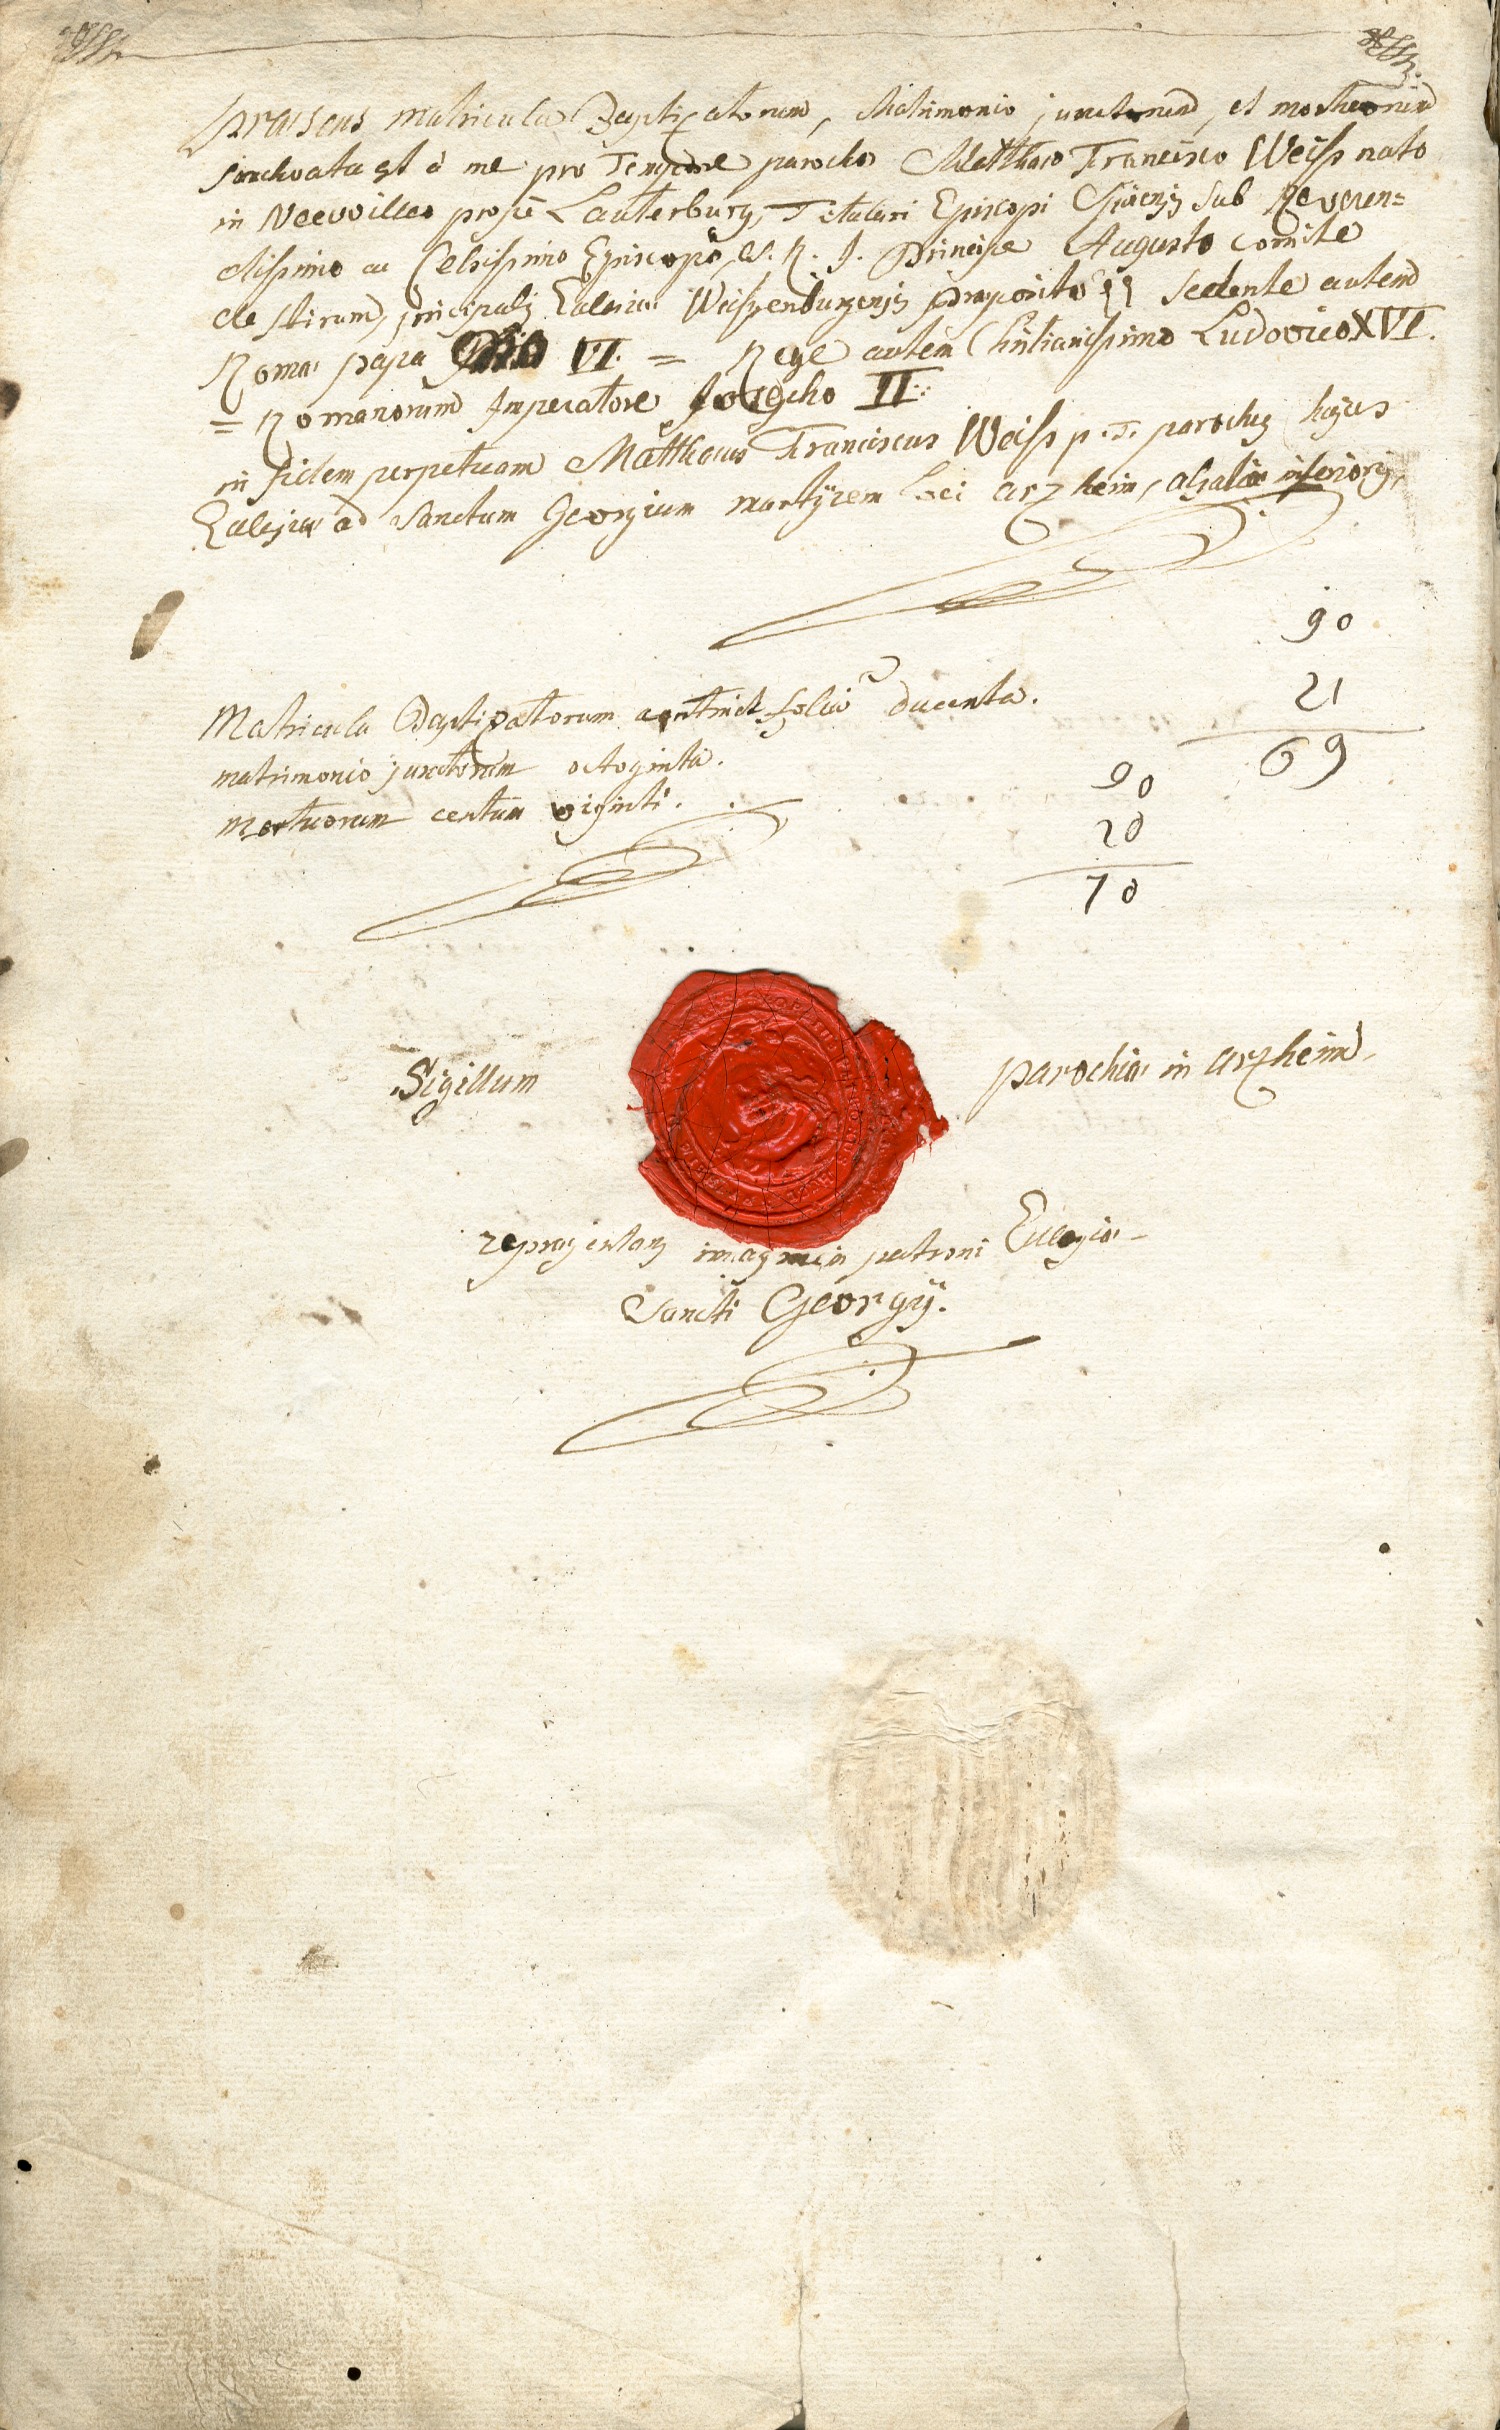 praesens matricula Baptizatorum, Matrimonio junctorum, et mortuorum
inchoata est à me pro Tempore parocho Matthaeo Francisco Weiss nato
in Neewiller prope Lauterburg, Titulari Episcopi sub Reveren=
dissimo ac Celsissimo Episcopo, S. R. I. Principe Augusto comite
de stirum, principalis Ecclesiae Weissenburgensis praeposito sedente autem
Romae papa Pio VI. = Rege autem Christianissimo Ludovico XVI.
= Romanorum Imperatore Josepho II.
in fidem perpetuam Matthaeus Franciscus Weiss p. T. parochus hujus
Ecclesiae ad Sanctum Georgium martÿrem Loci arzheim, alsatiae inferioris,
90
21
69
Matricula Baptizatorum continet folia ducenta.
matrimonio junctorum octoginta.
mortuorum centum viginti.
90
20
70
Sigillum parochiae in arzheim.
repraesentans imaginem patroni Ecclesiae
Sancti Georgÿ.